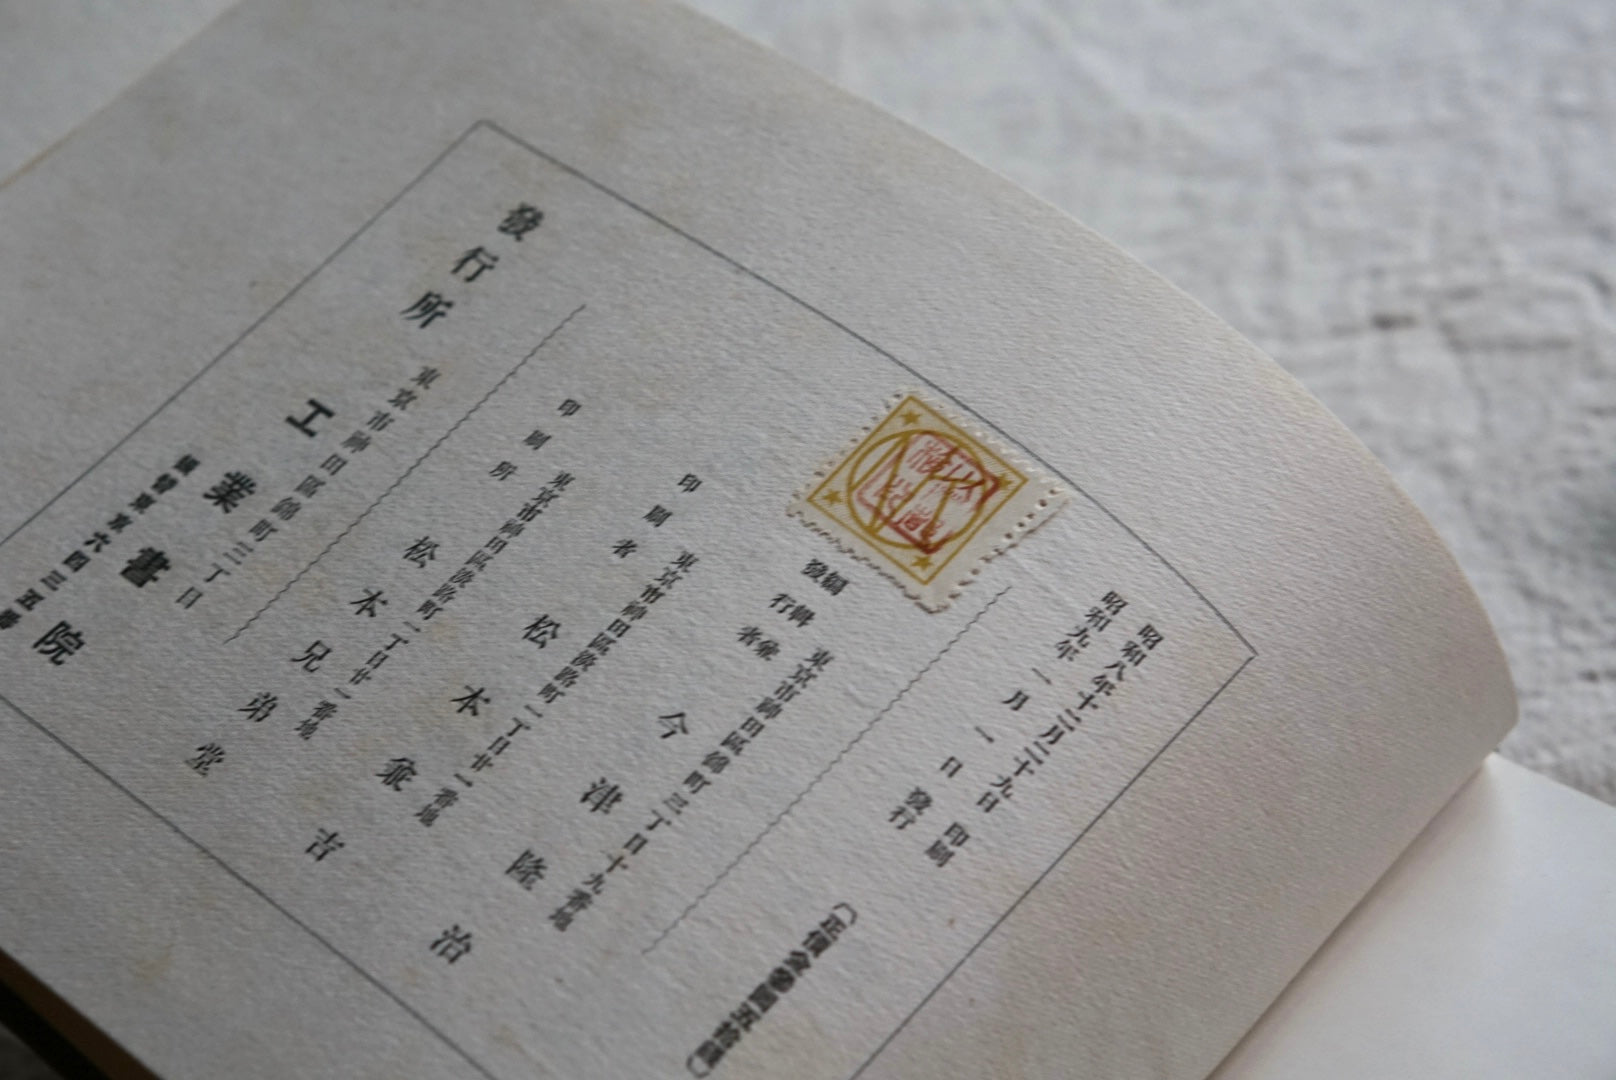 昭和八年十二月二十九日印刷
昭和九年一月一日發行
〔正價金參圓五拾錢〕
編輯兼
發行者
東京市神田區錦町三丁目十九番地
今津隆治
印刷者
東京市神田區淡路町一丁目廿一番地
松本兼吉
印刷所
東京市神田區淡路町一丁目廿一番地
松本兄弟堂
發行所
東京市神田區錦町三丁目
工業書院
振替東京六四三五番